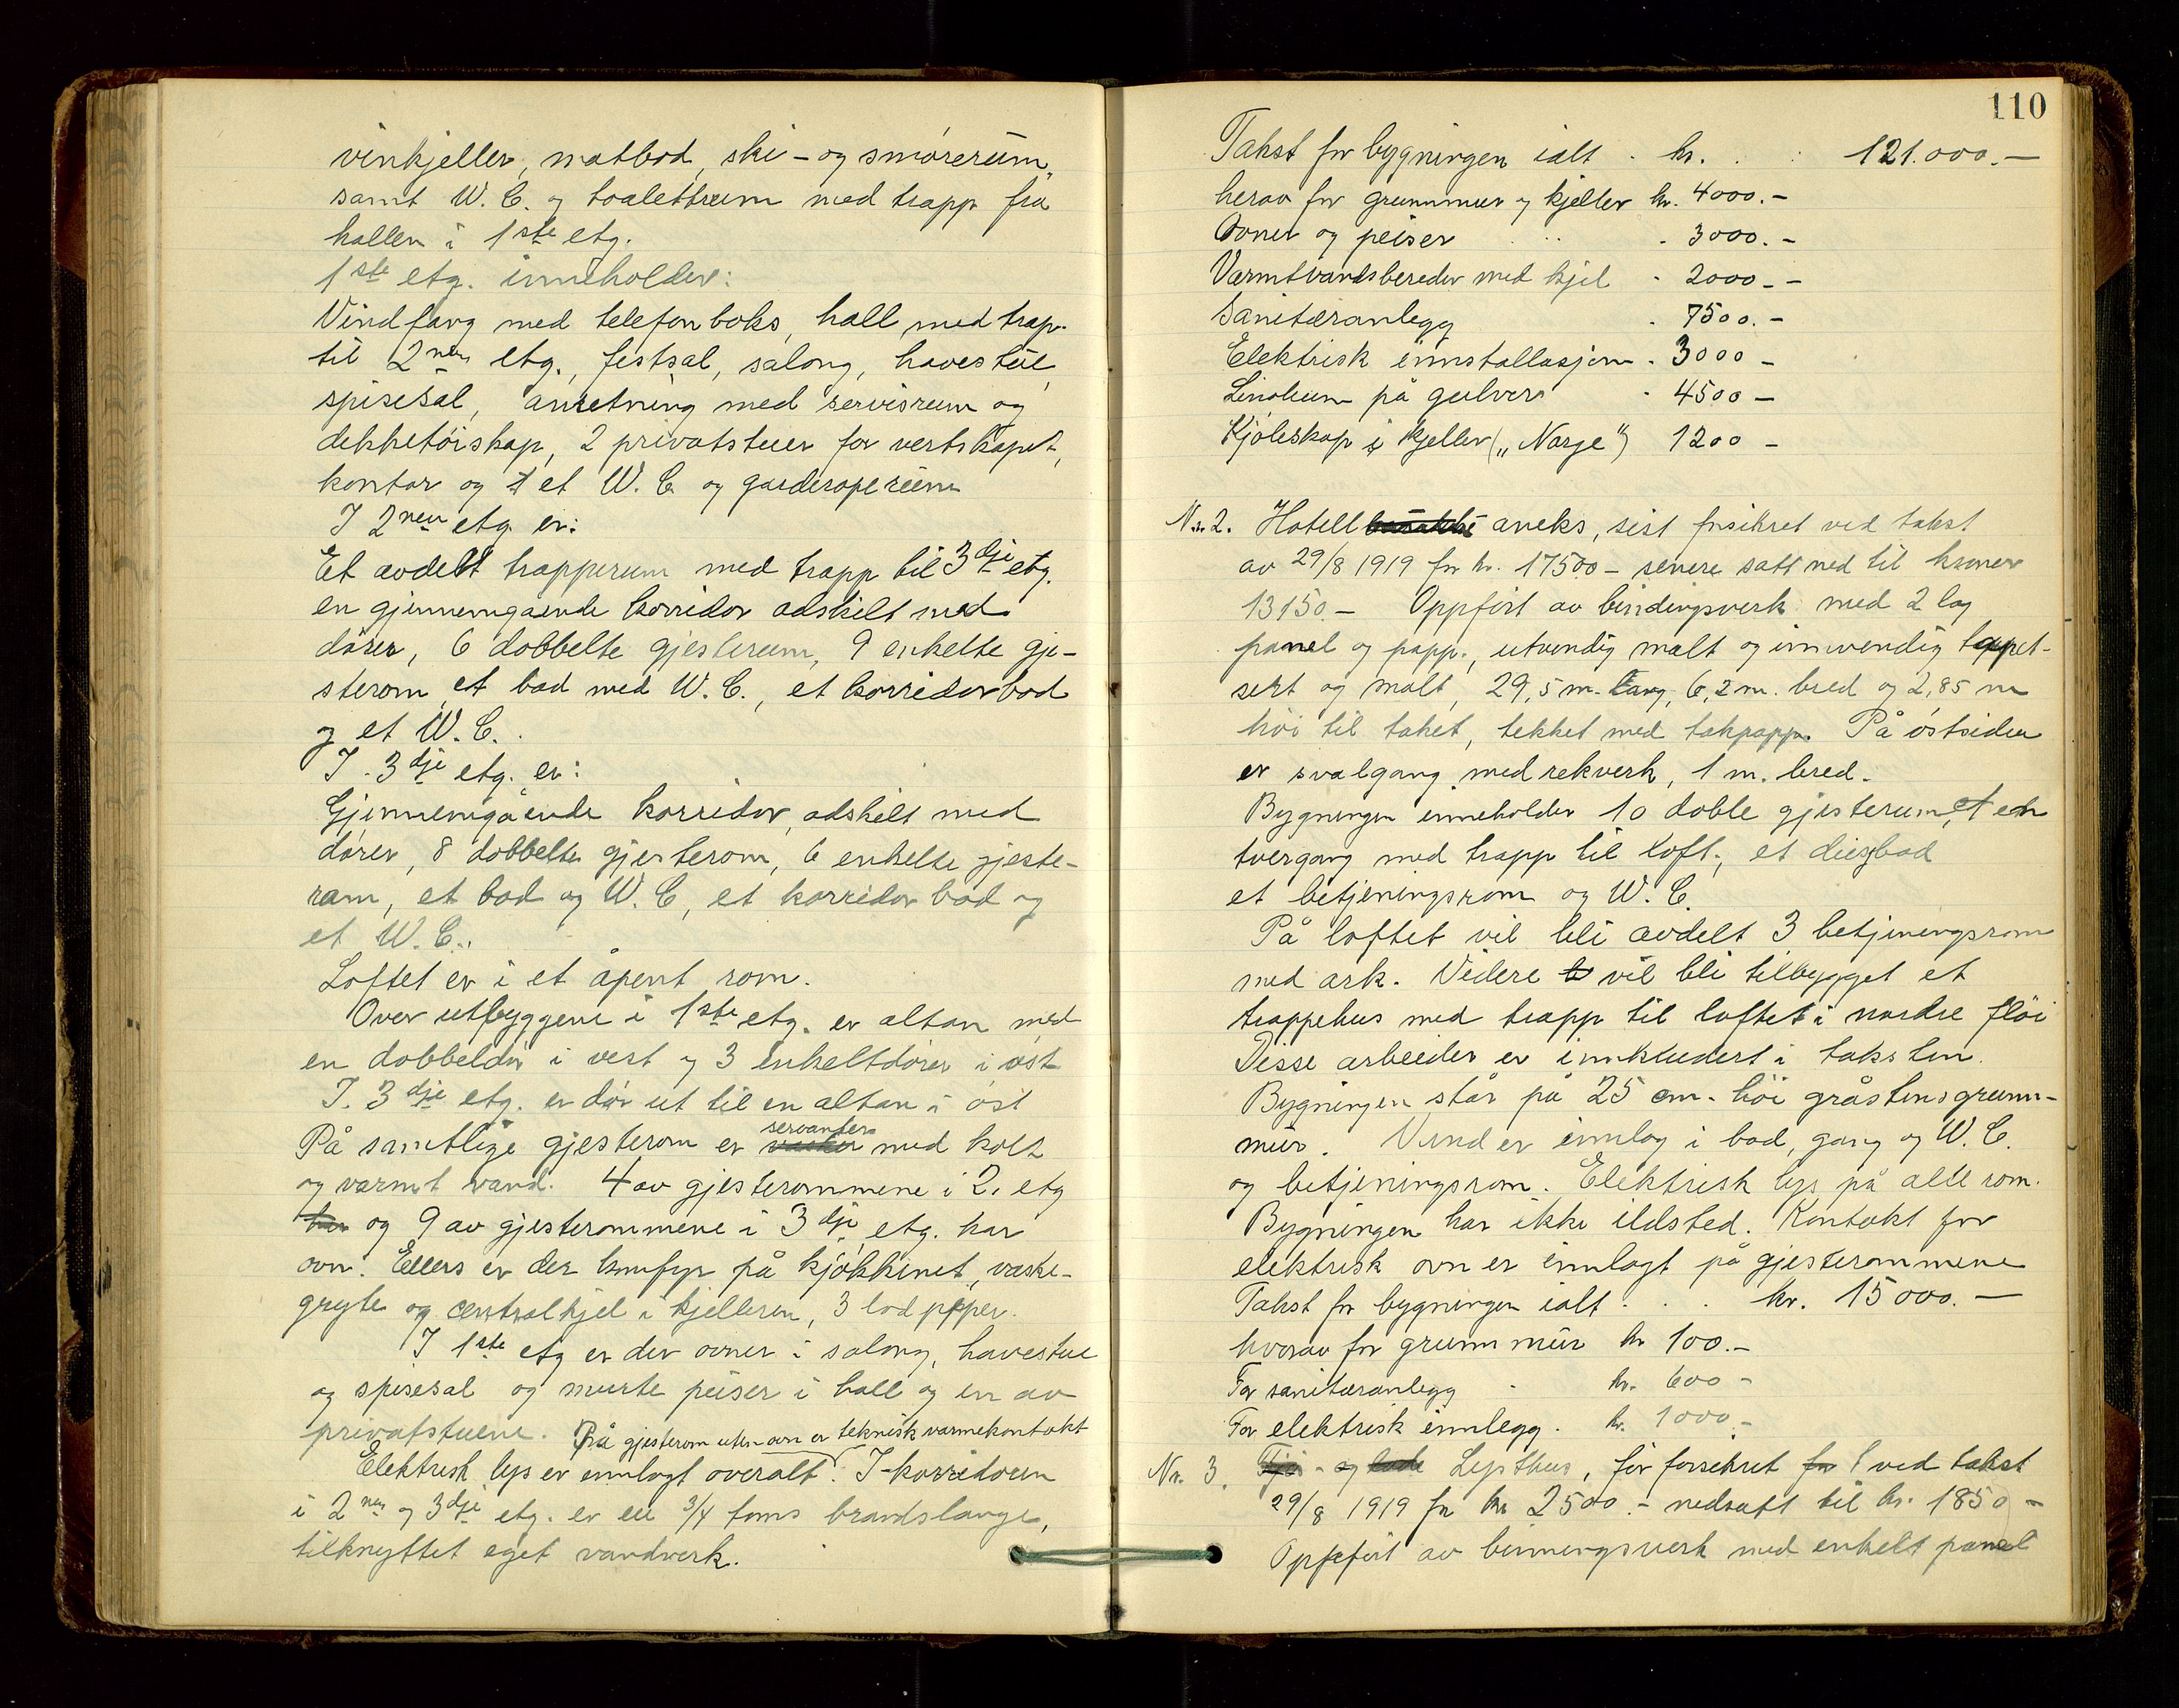 vinkjeller, matbod, ski- og smörerum,
samt W.C. og toalettrum med trapp fra
hallen i 1ste etg.
1ste etg. inneholder:
Vindfang med telefonboks, hall med trap.
til 2nen etg., festsal, salong, havestue,
spisesal, anretning med servisrum og
dekketöiskap, 2 privatstuer for vertskapet,
kontor og et W.C. og garderoperum
I 2nen etg. er:
Et avdelt trapperum med trapp til 3dje etg.
en gjennemgaaende korridor adskilt med
dörer, 6 dobbelte gjesterum, 9 enkelte gje-
sterom, et bad med W.C., et korridorbad
og et W.C.
I. 3dje etg. er:
Gjennemgående korridor, adskilt med
dörer, 8 dobbelte gjesterom, 6 enkelte gjeste-
rom, et bad og W.C, et korridor bad og
et W.C.
Loftet er i et åpent rom.
Over utbyggene i 1ste etg. er altan med
en dobbeldör i vest og 3 enkeltdörer i öst
I. 3dje etg. er dör ut til en altan i öst
På samtlige gjesterom er servanter med kolt
og varmt vand. 4 av gjesterommene i 2. etg
har og 9 av gjesterommene i 3dje etg. har
ovn. Ellers er der komfyr på kjökkenet, vaske-
gryte og centralkjel i kjelleren, 3 lod piper.
I 1ste etg er der ovner i salong, havestue
og spisesal og murte peiser i hall og en av
privatstuene. På gjesterom uten ovn er teknisk varmekontakt
Elektrisk lys er innlagt overalt. I korridoren
i 2nen og 3dje etg. er en 3/4 toms brandslange,
tilknyttet eget vandverk.
110
Takst for bygningen ialt . kr. . : 121.000.—
herav for grunnmur og kjeller kr. 4000.-
Ovner og peiser . 3000.-
Varmtvandsbereder med kjel . 2000.-
Sanitæranlegg . 7500.-
Elektrisk innstallasjon . 3000 -
Linoleum på gulver . 4500 -
Kjöleskap i kjeller („Norge") 1200 -
Nr. 2. Hotell aneks, sist forsikret ved takst
av 29/8 1919 for kr. 17500 - senere satt ned til kroner
13150.- Oppfört av bindingsverk med 2 lag
panel og papp., utvendig malt og innvendig tappet-
sert og malt, 29,5 m. lang, 6,2 m. bred og 2,85 m
höi til taket, tekket med takpapp. På östsiden
er svalgang med rekverk, 1 m. bred.
Bygningen inneholder 10 doble gjesterum, en
tvergang med trapp til loft, et dusjbad
et betjeningsrom og W.C.
På loftet vil bli avdelt 3 betjeningsrom
med ark. Videre vil bli tilbygget et
trappehus med trapp til loftet i nordre flöi
Disse arbeider er innkludert i taksten.
Bygningen står på 25 cm. höi gråstensgrunn-
mur. Vand er innlag i bad, gang og W.C.
og betjeningsrom. Elektrisk lys på alle rom.
Bygningen har ikke ildsted. Kontakt for
elektrisk ovn er innlagt på gjesterommene
Takst for bygningen ialt . . . kr. 15000.—
hvorav for grunnmur kr 100.-
For sanitæranlegg . kr. 600 -
For elektrisk innlegg. kr. 1000.-
Nr. 3. Fjös- og lade Lysthus, för forsikret for ved takst
29/8 1919 for kr 2500.- nedsatt til kr. 1850 -
Oppfört av binningsverk med enkelt panel